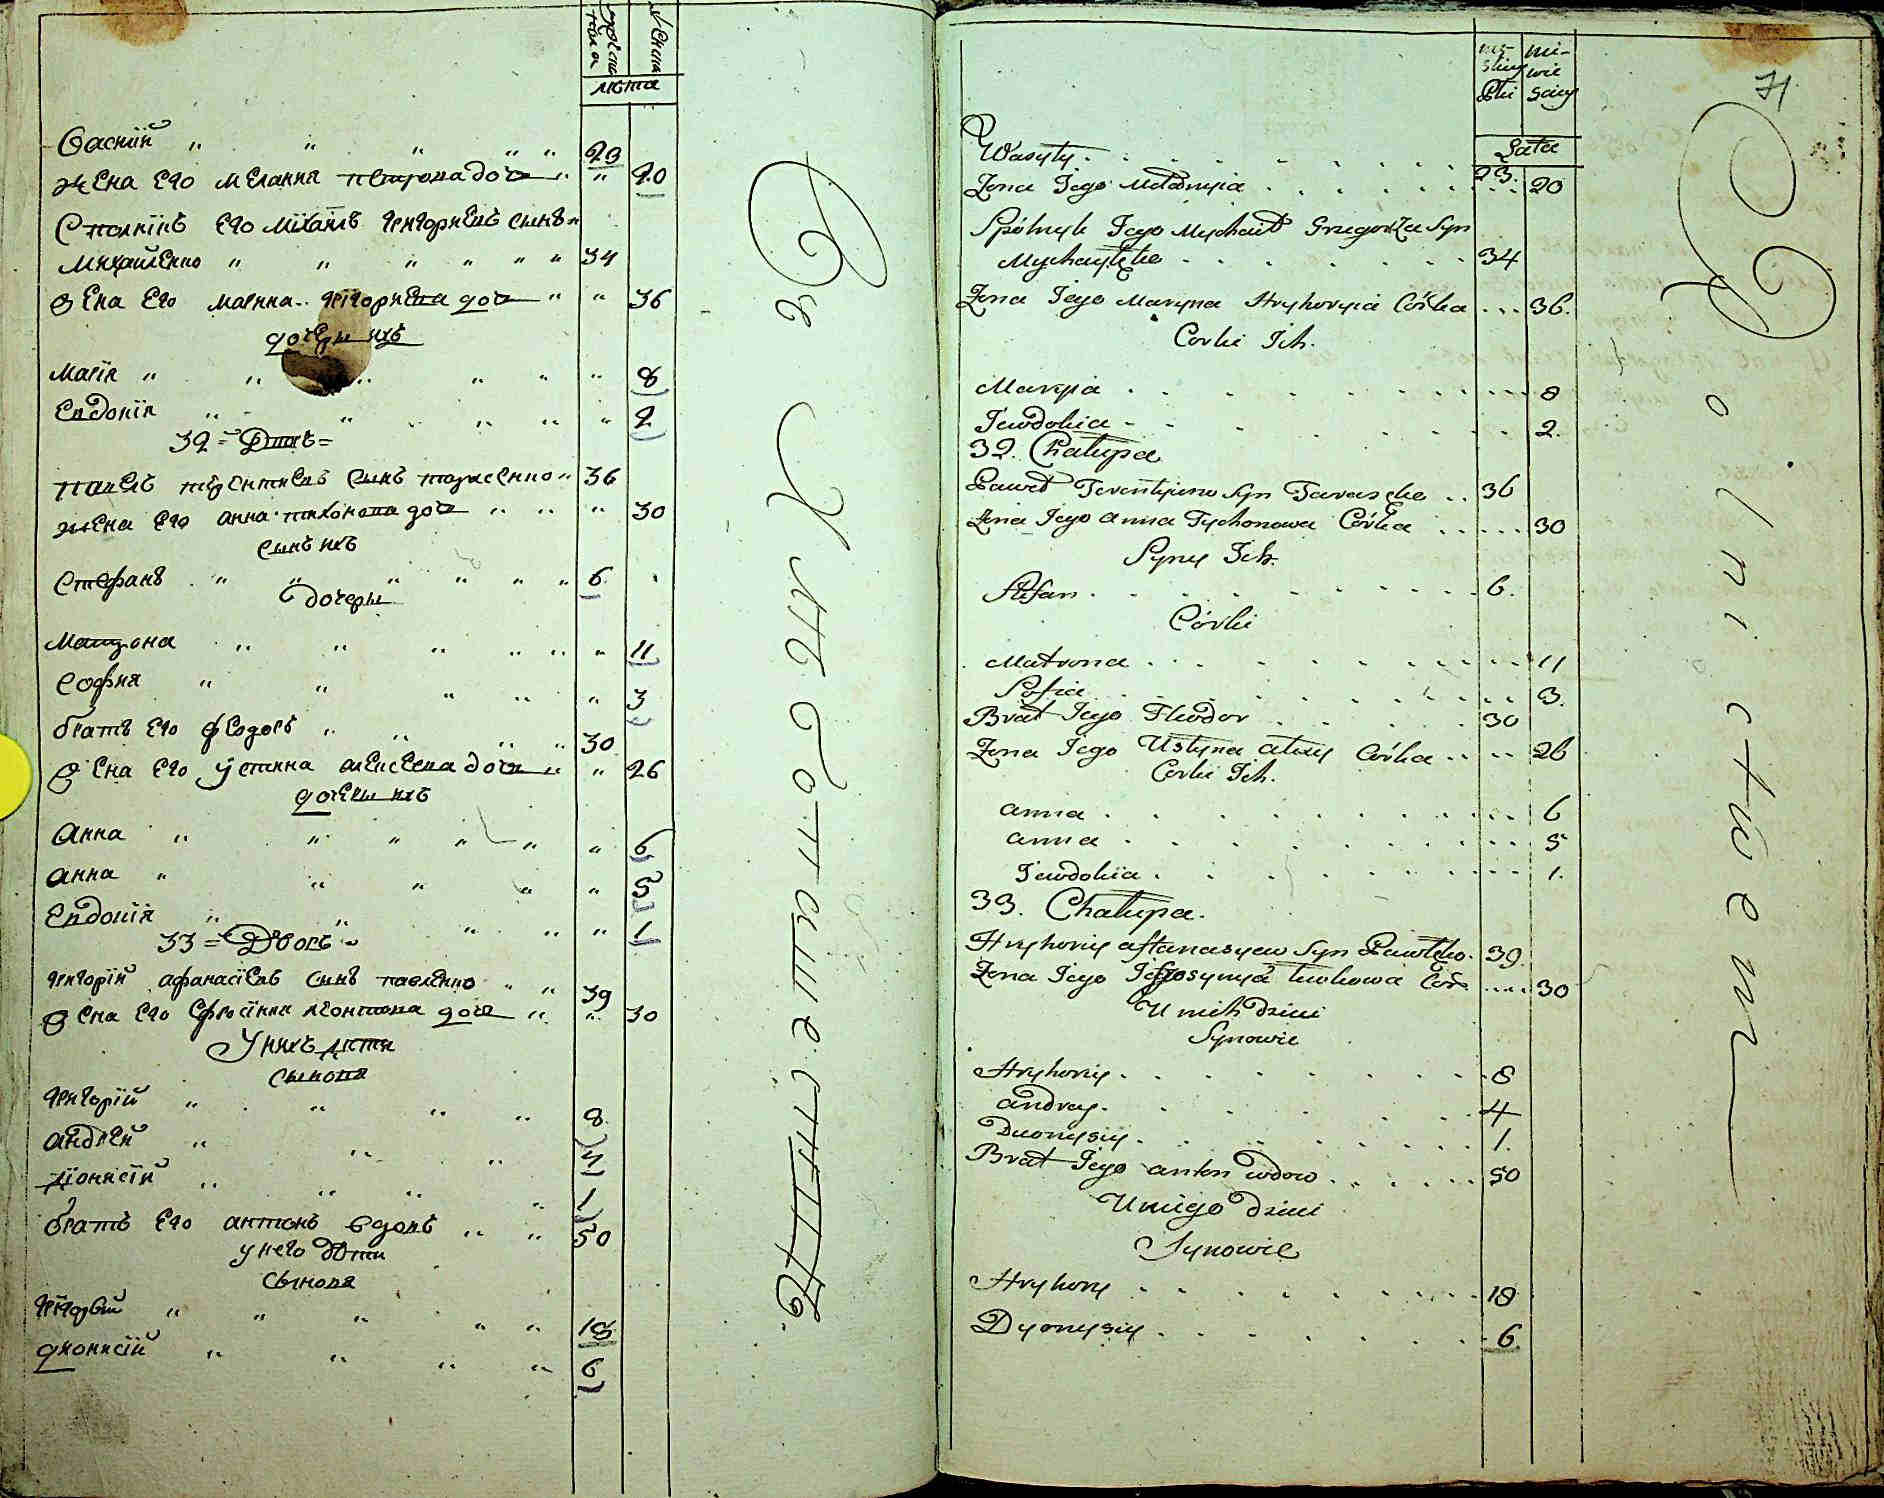 мужеска пола
женска
лѣта
Василій 23
жена его меланка петрова дочь 20
Столникъ его михаилъ григориевъ сынъ
михайленко 34
жена его марина григориева дочь 36
дочери ихъ
марія 8
Евдокія 2
32 = Дворъ =
павелъ терентиевъ сынъ тарасенко 36
жена его анна тихонова дочь 30
сынъ ихъ
стефанъ 6
дочеры
матрона 11
софия 3
братъ его феодоръ 30
жена его устина алексеева дочь 26
дочеры ихъ
анна 6
анна 5
Евдокія 1
33 = Дворъ
григорій афанасіевъ сынъ павленко 39
жена его Ефросінии леонтова дочь 30
У нихъ дѣти
сынова
григорій 8
андрей 4
діонисій 1
братъ его антонъ вдовъ 50
у него дѣти
сынова
григорій 18
дионисій 6
Въ Хлѣбопашествѣ
mę-skiey Płci
nie-wie sciey
Lata
71
Wasyly 23
Zona Jego Melanyia 20
Spólnyk Jego Mychaił Grzegorza Syn
Mychayłęko 34
Zona Jego Maryna Hryhoryia Córka 36.
Corki Ich.
Maryia 8
Jewdokia 2.
32. Chałupa
Paweł Terentyiew Syn Tarasęko 36
Zona Jego Anna Tychonowa Córka 30
Syny Ich.
Stefan 6.
Córki
Matrona 11
Sofia 3.
Brat Jego Theodor 30
Zona Jego Ustyna Alexey Córka 26
Corki Ich.
Anna 6
Anna 5
Jewdokiia 1.
33. Chałupa.
Hryhoriy Aftanasyew Syn Pawłęko 39.
Zona Jego Jefrosynyia Lwokowa Cór. 30
U nich dzieci
Synowie
Hryhoriy 8
Andrey 4
Duonysiy 1.
Brat Jego Anton wdow 50
U niego dzieci
Synowie
Hryhory 18
Dyonysiy 6
W Rolnictwem